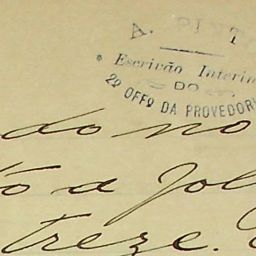 A. PINTO
Escrivão Interin
DO
2º OFFº DA PROVEDORI
do no
o a fol
treze.